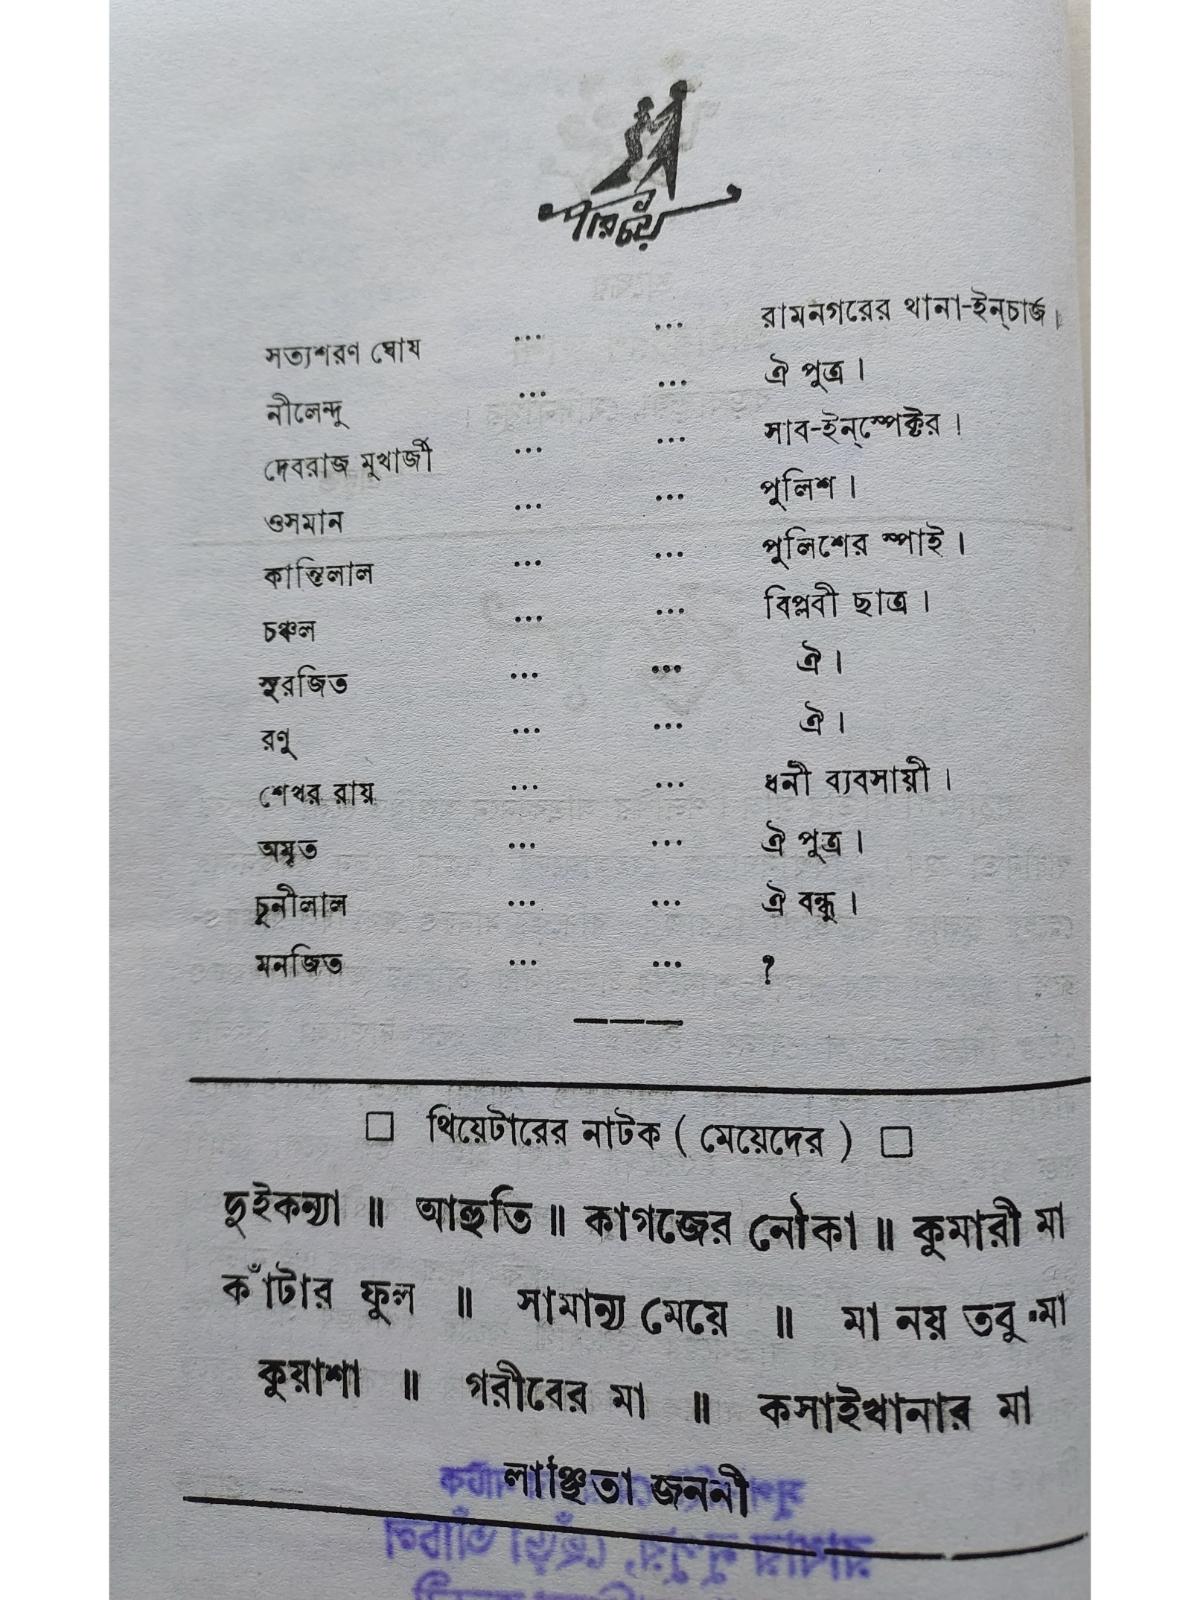 পরিচয়
সত্যশরণ ঘোষ ... ... রামনগরের থানা-ইন্‌চার্জ।
নীলেন্দু ... ... ঐ পুত্র।
দেবরাজ মুখার্জী ... ... সাব-ইন্‌স্পেক্টর।
ওসমান ... ... পুলিশ।
কান্তিলাল ... ... পুলিশের স্পাই।
চঞ্চল ... ... বিপ্লবী ছাত্র।
সুরজিত ... ... ঐ।
রণু ... ... ঐ।
শেখর রায় ... ... ধনী ব্যবসায়ী।
অমৃত ... ... ঐ পুত্র।
চুনীলাল ... ... ঐ বন্ধু।
মনজিত ... ... ?
□ থিয়েটারের নাটক ( মেয়েদের ) □
দুইকন্যা ॥ আহুতি ॥ কাগজের নৌকা ॥ কুমারী মা
কাঁটার ফুল ॥ সামান্য মেয়ে ॥ মা নয় তবু মা
কুয়াশা ॥ গরীবের মা ॥ কসাইখানার মা
লাঞ্ছিতা জননী